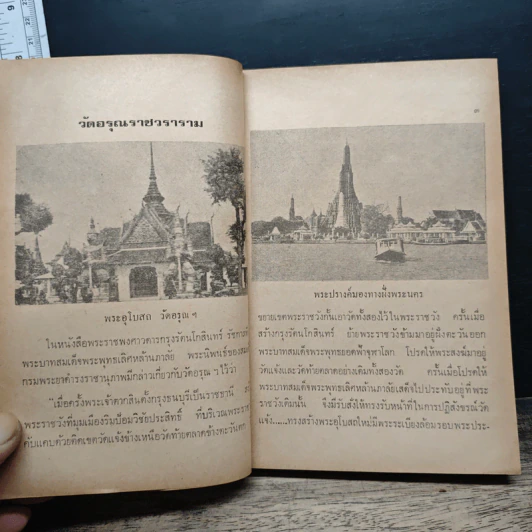 วัดอรุณราชวราราม
พระอุโบสถ วัดอรุณ ฯ
ในหนังสือพระราชพงศาวดารกรุงรัตนโกสินทร์ รัชกาล
พระบาทสมเด็จพระพุทธเลิศหล้านภาลัย พระนิพนธ์ของสม
กรมพระยาดำรงราชานุภาพมีกล่าวเกี่ยวกับวัดอรุณ ฯ ไว้ว่า
"เมื่อครั้งพระเจ้าตากสินตั้งกรุงธนบุรีเป็นราชธานี
พระราชวังที่มุมเมืองริมป้อมวิชัยประสิทธิ์ ที่บริเวณพระราช
คับแคบด้วยติดเขตวัดแจ้งข้างเหนือวัดท้ายตลาดข้างตะวันตก
พระปรางค์มองทางฝั่งพระนคร
ขยายเขตพระราชวังกั้นเอาวัดทั้งสองไว้ในพระราชวัง ครั้นเมื่อ
สร้างกรุงรัตนโกสินทร์ ย้ายพระราชวังข้ามมาอยู่ฝั่งตะวันออก
พระบาทสมเด็จพระพุทธยอดฟ้าจุฬาโลก โปรดให้พระสงฆ์มาอยู่
วัดแจ้งและวัดท้ายตลาดอย่างเดิมทั้งสองวัด ครั้นเมื่อโปรดให้
พระบาทสมเด็จพระพุทธเลิศหล้านภาลัยเสด็จไปประทับอยู่ที่พระ
ราชวังเดิมนั้น จึงมีรับสั่งให้ทรงรับหน้าที่ในการปฏิสังขรณ์วัด
แจ้ง.....ทรงสร้างพระอุโบสถใหม่มีพระระเบียงล้อมรอบพระประ-